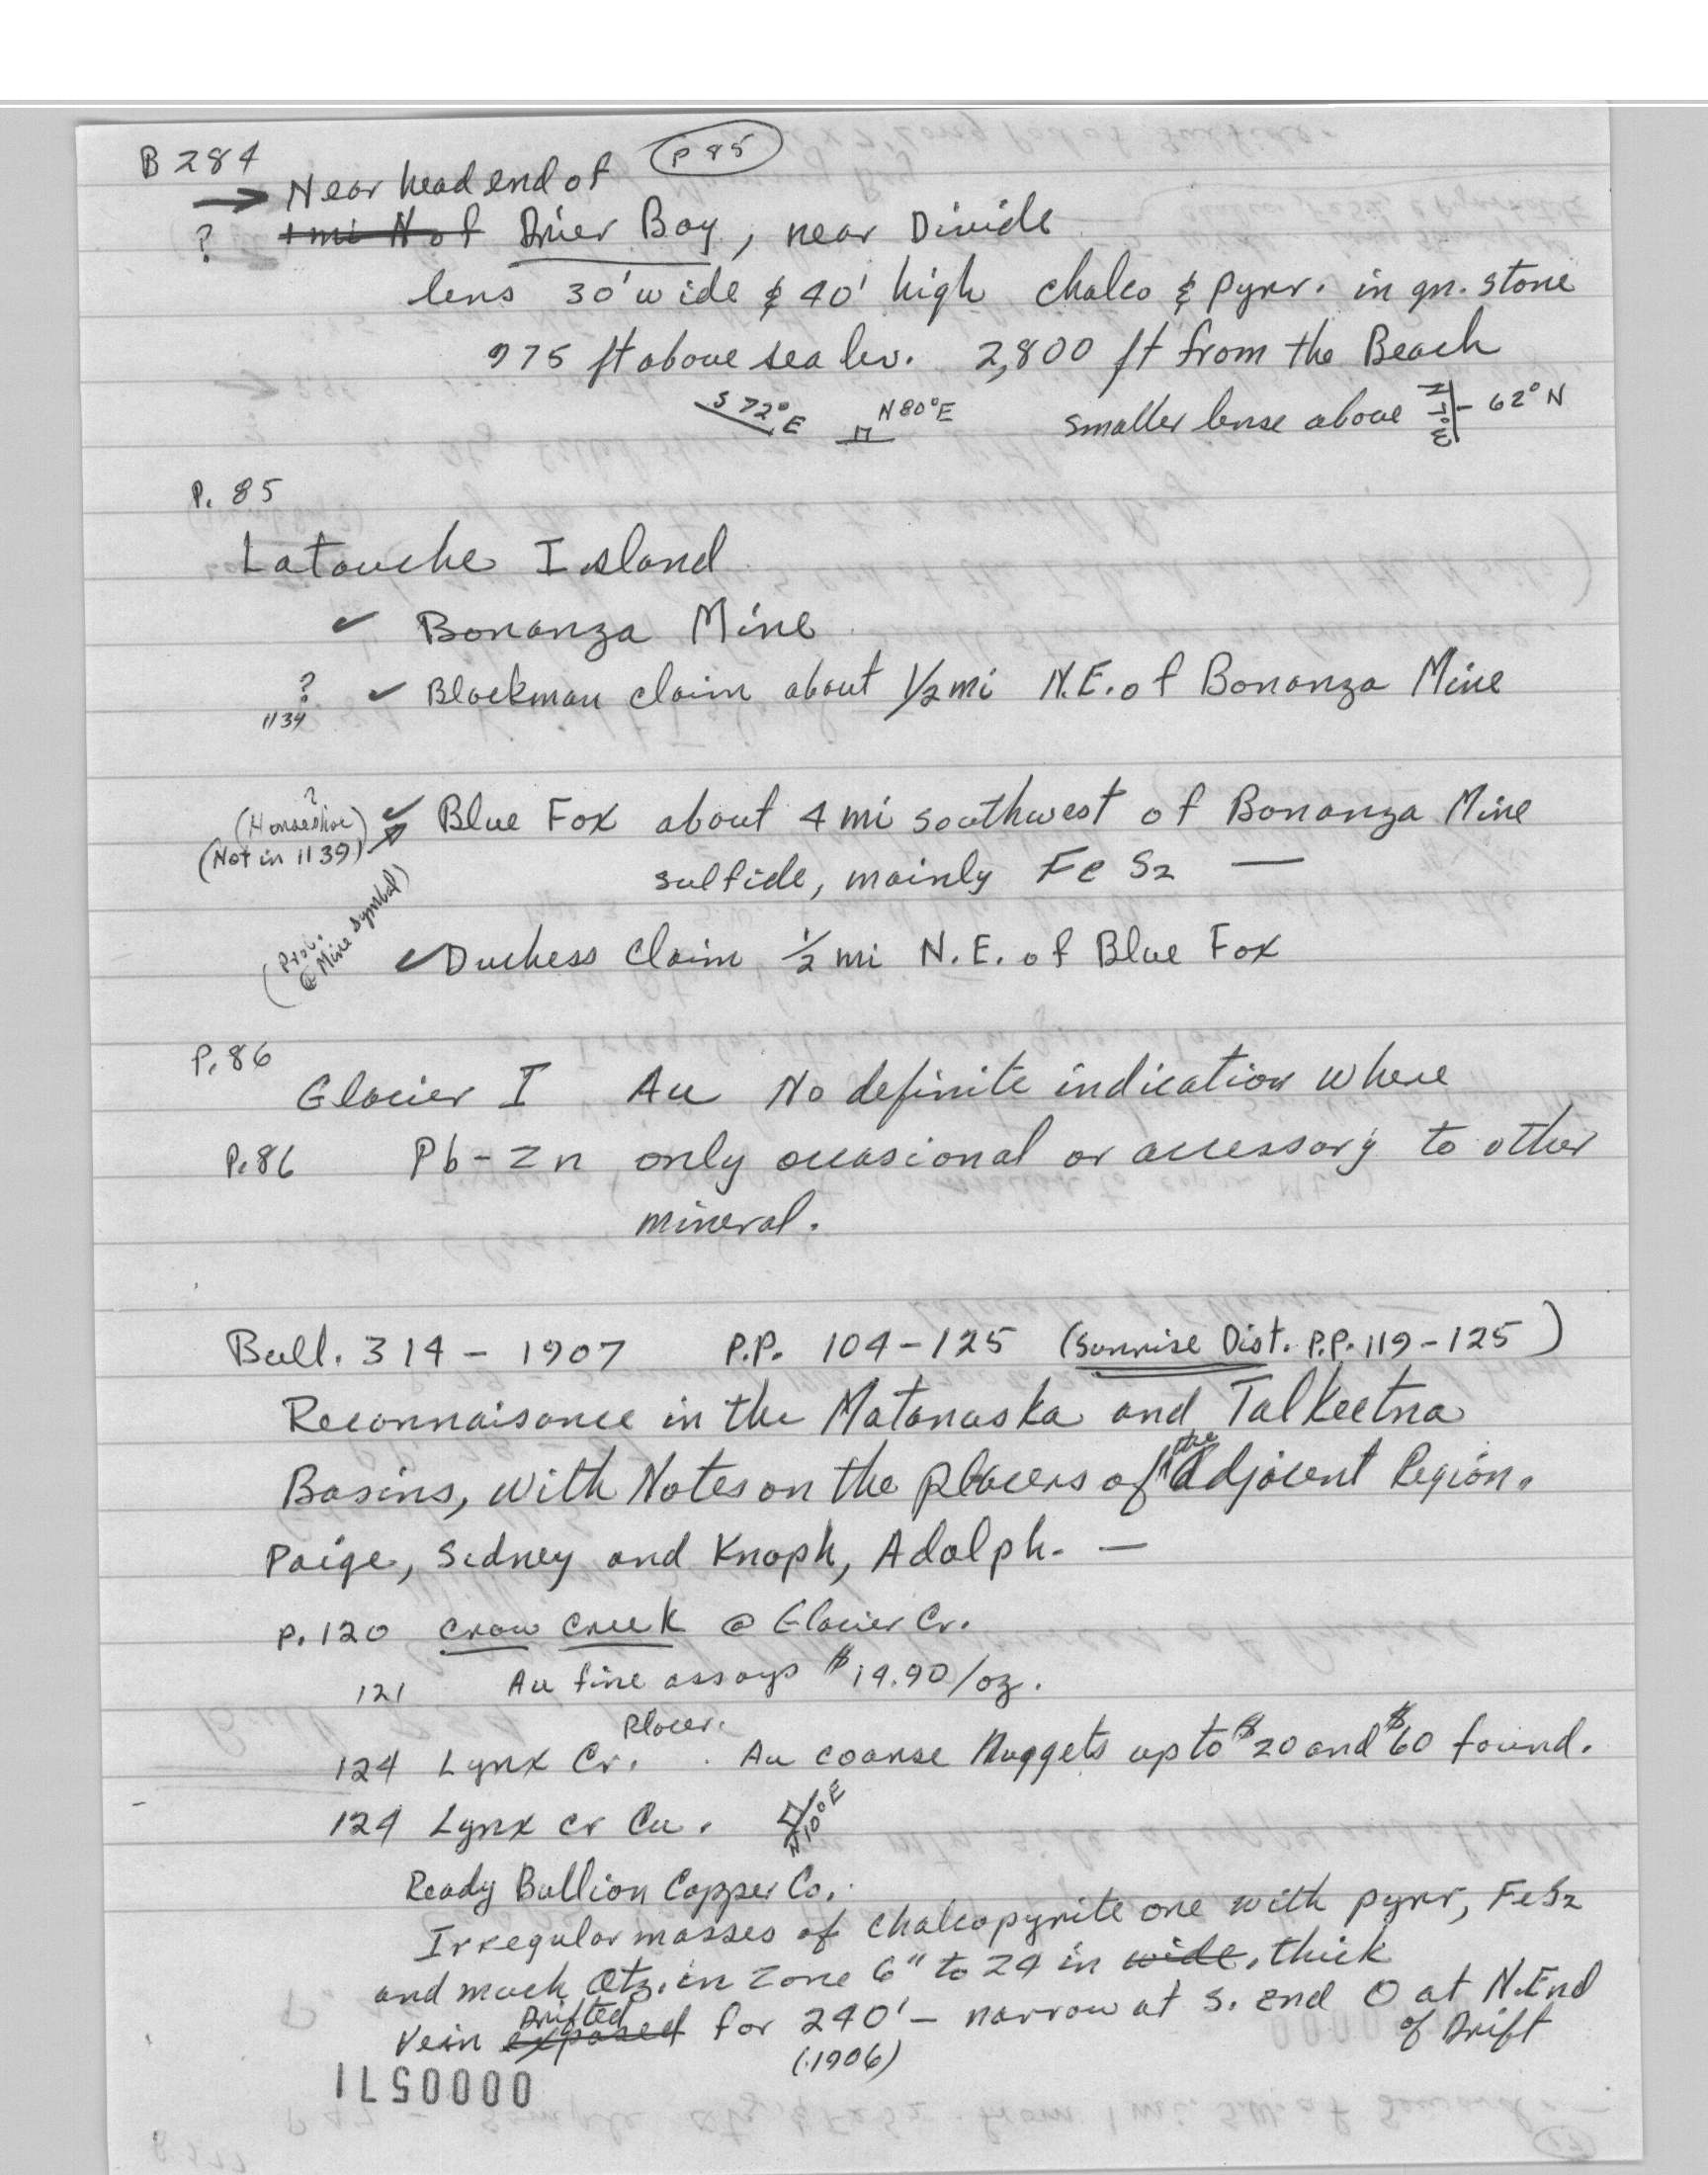 B 284
P 85
→ Near head end of
? 1 mi N of Drier Bay, near Divide
lens 30' wide & 40' high chalco & pyrr. in gn. stone
975 ft above sea lev. 2,800 ft from the Beach
S 72° E N 80° E smaller lense above 62° N
P. 85
Latouche Island
✓ Bonanza Mine
? ✓ Blackman claim about 1/2 mi N.E. of Bonanza Mine
1139
?
(Horseshoe) ✓ Blue Fox about 4 mi southwest of Bonanza Mine
(Not in 1139) →
sulfide, mainly FeS2 —
(Prob. @ Mine symbol) ✓ Duchess Claim 1/2 mi N.E. of Blue Fox
P. 86
Glacier I Au No definite indication where
P. 86 Pb-Zn only occasional or accessory to other
mineral.
Bull. 314 - 1907 P.P. 104-125 (Sunrise Dist. P.P. 119-125)
Reconnaisance in the Matanuska and Talkeetna
Basins, with Notes on the Placers of the Adjacent Region.
Paige, Sidney and Knoph, Adolph. —
P. 120 Crow Creek @ Glacier Cr.
121 Au fine assays $19.90/oz.
Placer.
124 Lynx Cr. Au coarse Nuggets up to $20 and $60 found.
124 Lynx cr Cu. N 10° E
Ready Bullion Copper Co.
Irregular masses of chalcopyrite one with pyrr, FeS2
and much Qtz. in zone 6" to 24 in wide, thick
Vein exposed Drifted for 240' - narrow at S. End 0 at N. End
of Drift
(1906)
00000571